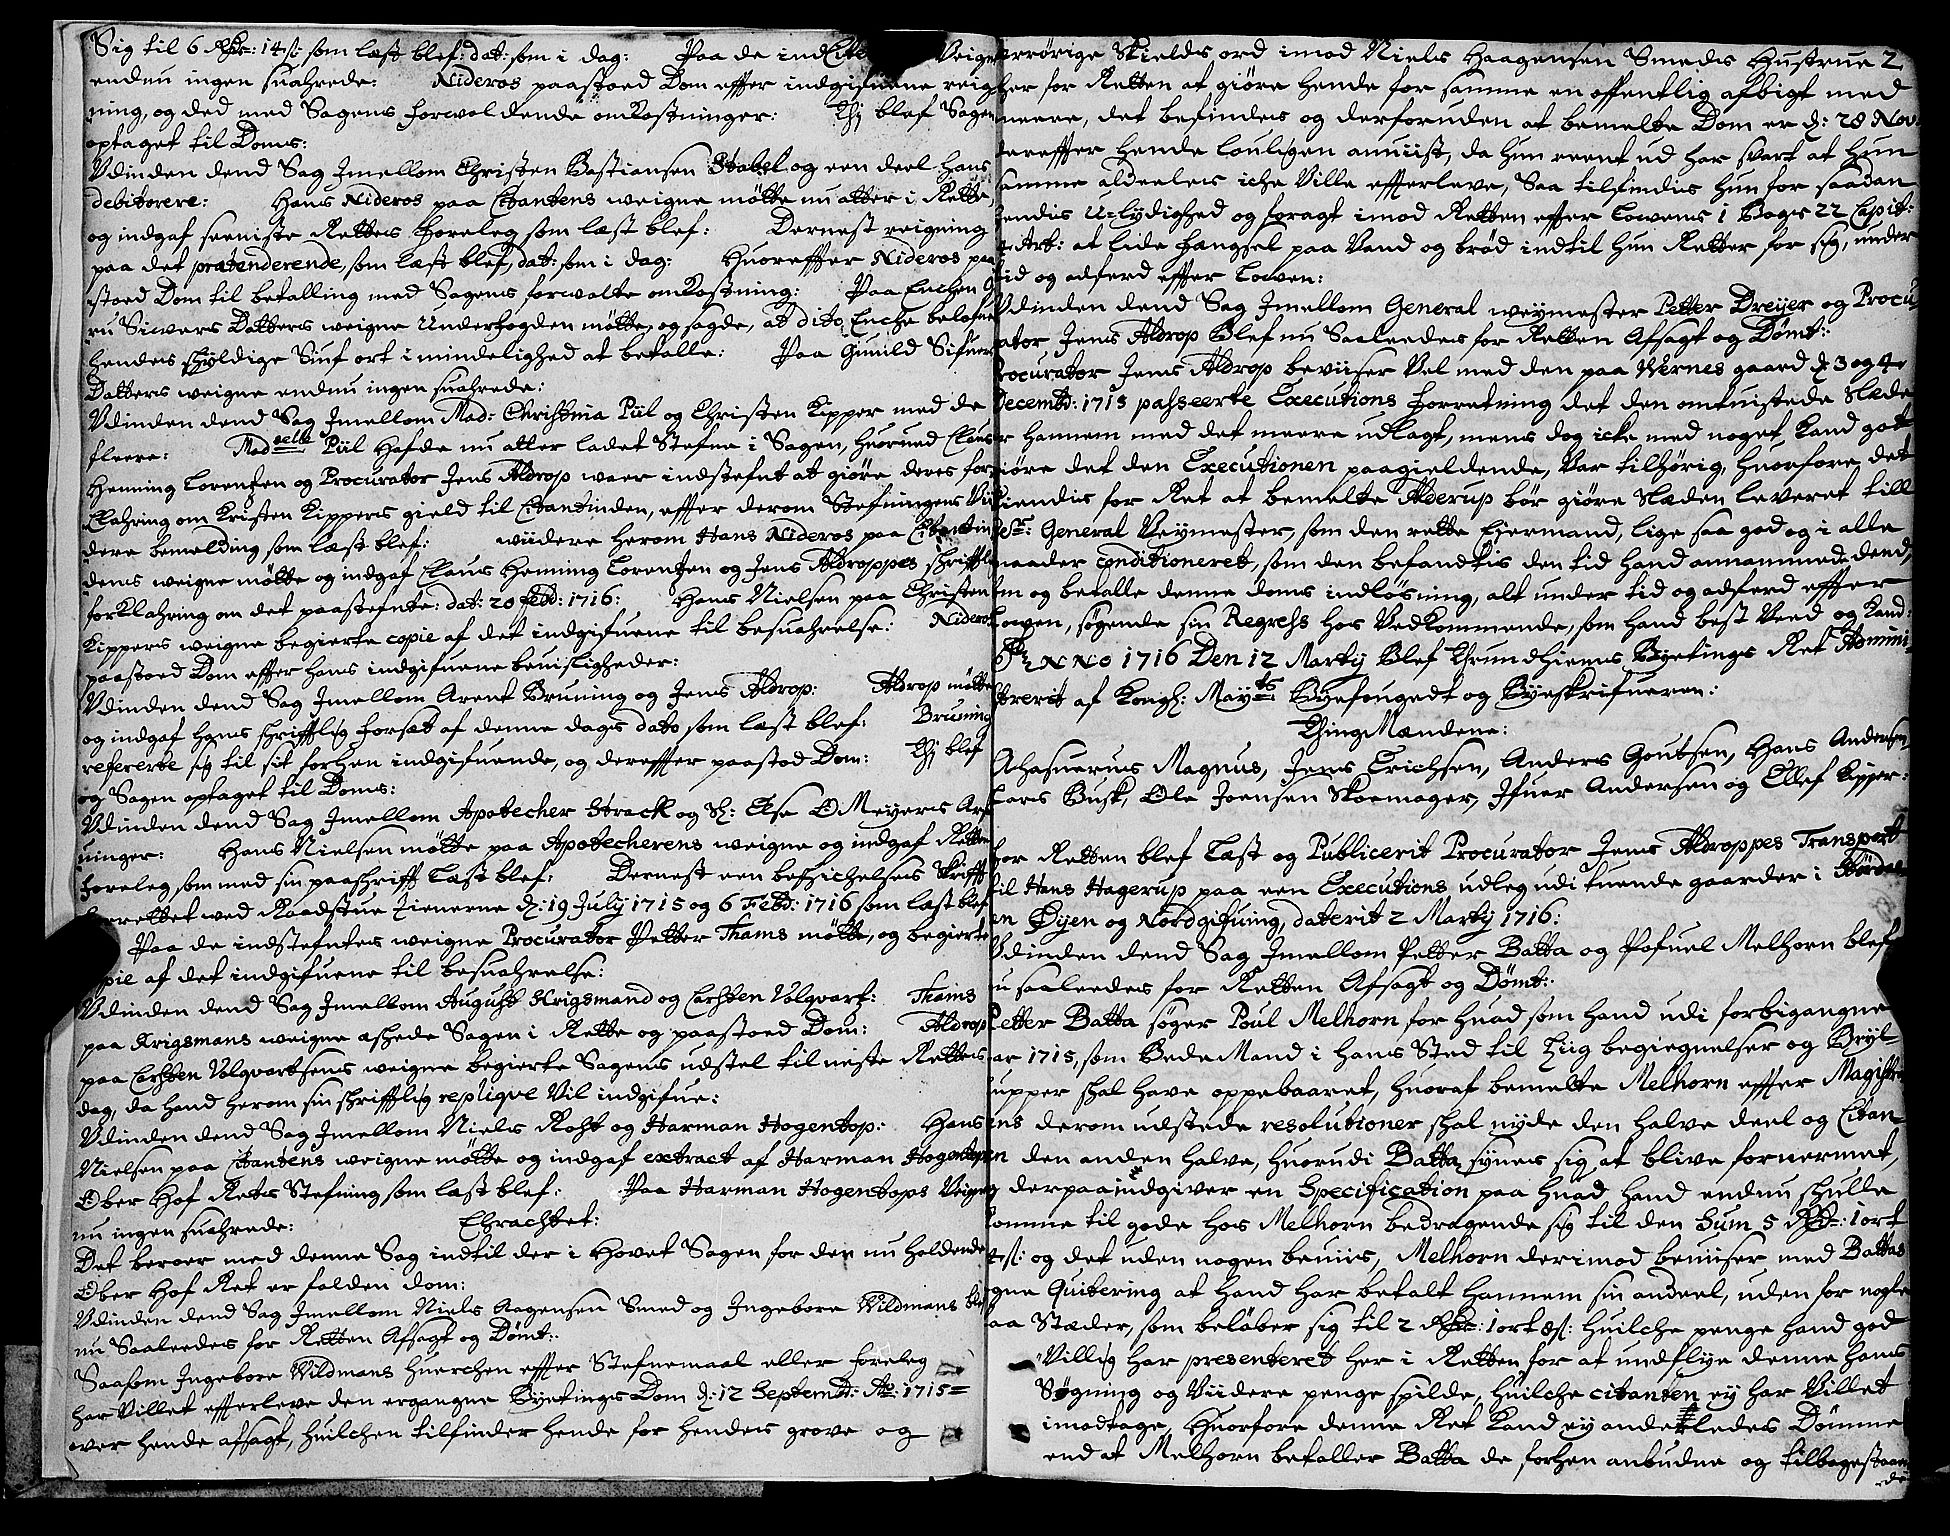 Sig til 6 Rdr: 14 s: som læst blef: dat: som i dag: Paa de indCite Veigne
endnu ingen suahrede: Nideros paastoed Dom effter indgifuene reig
ning, og ded med Sagens forvoldende omkostninger: Thj blef Sagen
optaget til Doms:
Udinden dend Sag Jmellom Christen Bastiansen Stabel og een deel hans
debitorere: Hans Nideros paa Citantens weigne mötte nu atter i Rette
og indgaf seeniste Rettes Foreleg som læst blef: Dernest reigning
paa det prætenderende, som læst blef, dat: som i dag: Huoreffter Nideros paa
stoed Dom til betalling med Sagens forvolte omkostning: Paa Enchen
ru Siwers Datters weigne Underfogden mötte, og sagde, at dito Enche belofue
hendes skyldige Siuf ort i mindelighed at betalle: Paa Gunild Sifuers
Datters weigne endnu ingen suahrede:
Udinden dend Sag Jmellom Mad: Christnia Piil og Christen Kipper med de
fleere: Madselle Piil hafde nu atter ladet Stefne i Sagen, huorved Claus
Henning Lorentzen og Procurator Jens Aldrop waer indstefnt at giöre deres for
Clahring om Kristen Kippers gield til Citantinden, effter derom Stefningens Vii
dere bemelding som læst blef: wiidere herom Hans Nideros paa Citantin
dens weigne mötte og indgaf Claus Henning Lorentzen og Jens Aldroppes skrifftl
forklahring om det paastefnte: dat: 20 Febr: 1716: Hans Nielsen paa Christen
Kippers weigne begierte copie af det indgifuene til besuahrelse: Nideros
paastoed Dom effter hans indgifuene beuisligheder:
Udinden dend Sag Jmellom Arent Bruning og Jens Aldrop: Aldrop mötte
og indgaf hans skrifftlig forsæt af denne dags dato som læst blef: Bruning
refererte sig til sit forhen indgifuende, og dereffter paastod Dom: Thj blef
og Sagen optaget til Doms:
Udinden dend Sag Jmellom Apotecher Strack og Sl: Else OMeyers Arf
uinger: Hans Nielsen mötte paa Apotecherens weigne og indgaf Retten
Foreleg som med sin paaskrifft Læst blef: Dernest een besichelses Skrifft
forrettet ved Raadstue Tienerne d: 19 July 1715 og 6 Febr: 1716 som læst blef
Paa de indstefntes weigne Procurator Petter Thams mötte, og begierte
Copie af det indgifuene til besuahrelse:
Udinden dend Sag Jmellom August Krigsmand og Carsten Volqvart: Thams
paa Krigsmans weigne æshede Sagen i Rette og paastoed Dom: Aldrop
paa Carsten Volqvartsens weigne begierte Sagens udstel til neste Rettes
dag, da hand herom sin skrifftlig replique Vil indgifue:
Udinden dend Sag Jmellom Niels Kost og Harman Hogentop: Hans
Nielsen paa Citantens weigne mötte og indgaf extract af Harman Hogentopes
Ober Hof Rets Stefning som læst blef: Paa Harman Hogentops Veigne
nu ingen suahrede: Ebrachtet:
Det beroer med denne Sag indtil der i Hovet Sagen for den nu holdende
Ober Hof Ret er falden dom:
Udinden dend Sag Jmellom Niels Aagensen Smed og Ingebore Wildmans blef
nu Saaledes for Retten Afsagt og Dömt:
Saasom Ingebore Wildmans huerchen effter Stefnemaal eller foreleg
har Villet effterleve den ergangne Byetings Dom d: 12 Septembr: Ao: 1715
over hende afsagt, huilchen tilfinder hende for hendes grove og
errörige Skields ord imod Niels Haagensen Smeds Hustrue 2
her for Retten at giöre hende for samme en offentlig afbigt med
meere, det befindes og derforuden at bemelte Dom er d: 28 Nov:
dereffter hende loulligen anviist, da hun reent ud har svart at hun
samme aldeeles iche Ville effterleve, Saa tilfindis hun for saadan
hendis U-lydighed og foragt imod Retten effter Lowens 1 Bogs 22 Capit:
4 Art: at lide fængsel paa Vand og bröd indtil hun Retter for sig, under
tid og adferd effter Lowen:
Udinden dend Sag Jmellom General weymester Petter Dreyer og Procu
rator Jens Aldrop Blef nu Saaleedes for Retten Afsagt og Dömt:
Procurator Jens Aldrop beviiser Vel med den paa Wernes gaard d: 3 og 4
Decembr: 1715 passeerte Executions Forretning det den omtuistede Slæde
er hannem med det meere udlagt, mens dog icke med noget kand got
giöre det den Executionen paagieldende, Var tilhörig, huorfore det
kiendis for Ret at bemelte Alderup bör giöre Slæden leveret till
Sr: General Veymester, som den rette Eiermand, lige saa god og i alle
maader conditioneret, som den befandtis den tid hand annammede dend,
som og betalle denne doms indlösning, alt under tid og adferd effter
Lowen, sögende sin Regress hos Vedkommende, som hand best Veed og kand:
ANNO 1716 Den 12 Martij Blef Thrundhiems Byetings Ret Admini
strerit af Kongl: Mayts Byefougedt og Byeskrifueren:
ThingMændene:
Ahasuerus Magnus, Jens Erichsen, Anders Goutsen, Hans Andersen
Lars Busk, Ole Joensen Skoemager, Ifuer Andersen og Ellef Kipper:
For Retten blef Læst og Publicerit Procurator Jens Aldroppes Transport
til Hans Hagerup paa een Executions udleg udi tuende gaarder i Stördalen
en Öyen og Nordgifuing, daterit 2 Martij 1716:
Udinden dend Sag Jmellom Petter Batta og Pofuel Melhorn blef
nu saaleedes for Retten Afsagt og Dömt:
Petter Batta söger Poul Melhorn for huad som hand udi forbigangne
aar 1715, som BedeMand i hans Sted til Liig begiegnelser og Bryl
lupper skal have oppebaaret, huoraf bemelte Melhorn effter Magistra
tens derom udstede resolutioner skal nyde den halve deel og Citan
ten den anden halve, huorudi Batta synes sig at blive fornermet,
og derpaa indgiver en Specification paa huad hand endnu skulle
komme til gode hos Melhorn bedragende sig til den Sum 5 Rdr: 1 ort
4 s: og det uden nogen beuiis, Melhorn derimod beuiser med Battas
egne Quitering at hand har betalt hannem sin andeel, uden for nogle
faa Stæder, som belöber sig til 2 Rdr: 1 ort 8 s: huilche penge hand god
Villig har presenteret her i Retten for at undflye denne hans
Sögning og Viidere penge spilde, huilche citanten ey har Villet
imodtage, huorfore denne Ret kand ey anderledes Dömme
end at Melhorn betaller Batta de forhen anbudne og tilbagestaaen
de